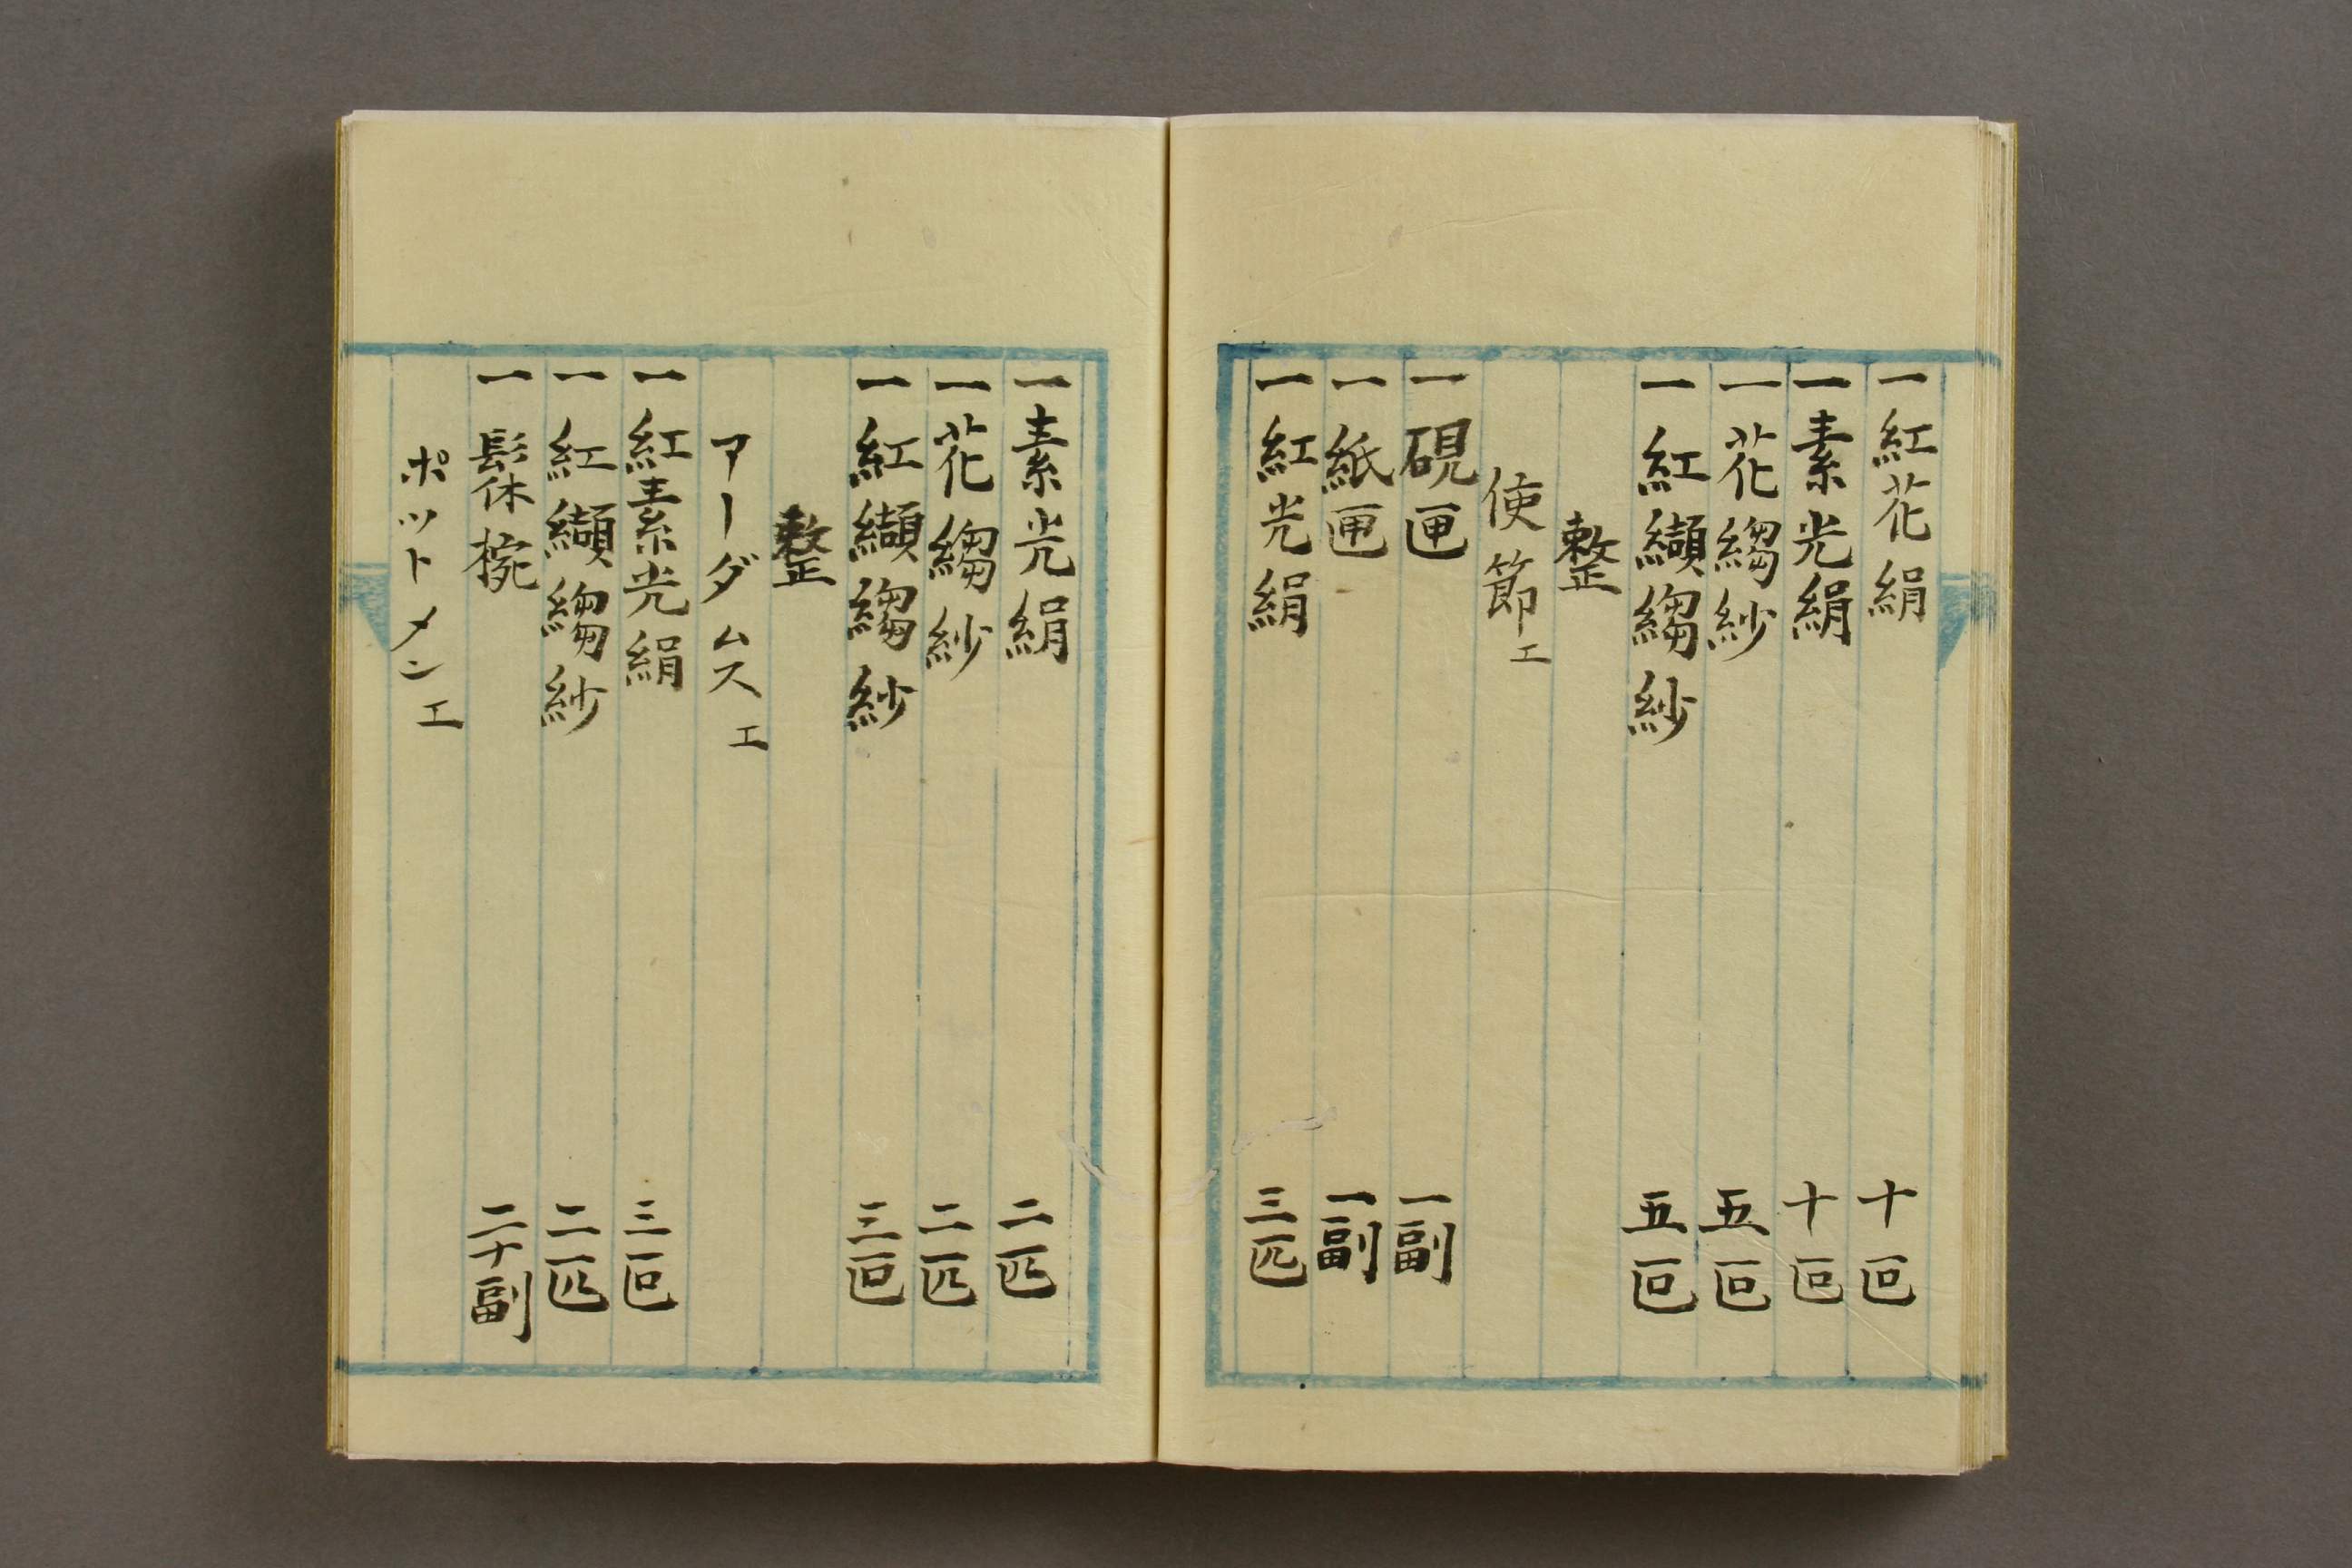 一紅花絹 十𠤭
一素光絹 十𠤭
一花縐紗 五𠤭
一紅纈縐紗 五𠤭
整
使節エ
一硯匣 一副
一紙匣 一副
一紅光絹 三匹
一素光絹 二匹
一花縐紗 二匹
一紅纈縐紗 三𠤭
整
アーダムスエ
一紅素光絹 三𠤭
一紅纈縐紗 二匹
一髹椀 二十副
ポットメンエ